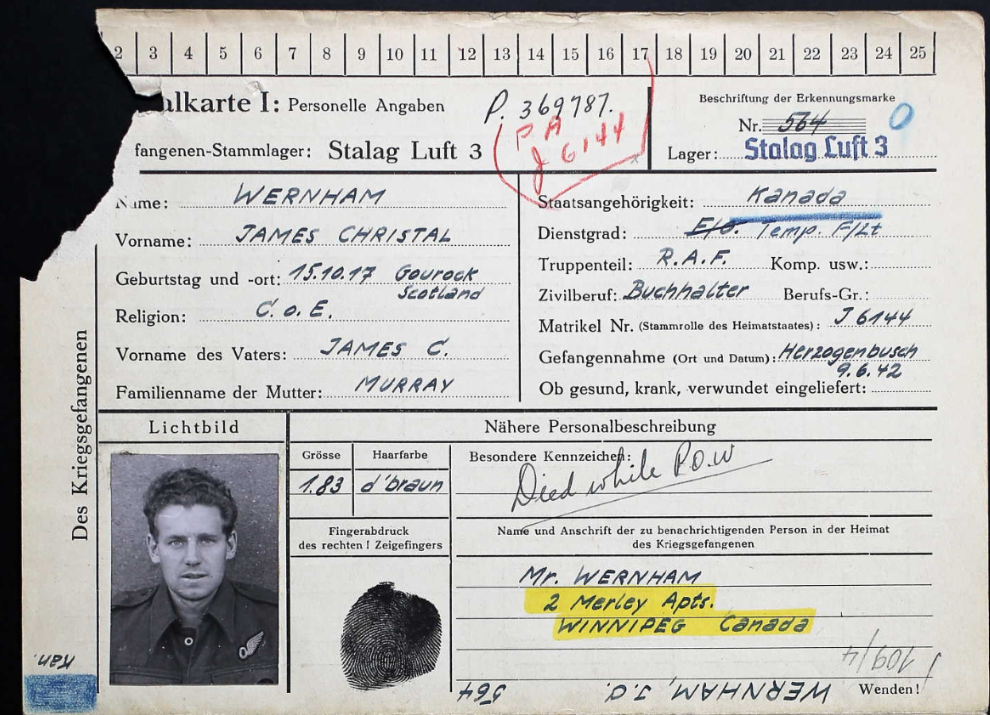 2 3 4 5 6 7 8 9 10 11 12 13 14 15 16 17 18 19 20 21 22 23 24 25
alkarte I: Personelle Angaben
P. 369787.
PA
J 6144
fangenen-Stammlager: Stalag Luft 3
Beschriftung der Erkennungsmarke
Nr. 564
0
Lager: Stalag Luft 3
Name: WERNHAM
Vorname: JAMES CHRISTAL
Geburtstag und -ort: 15.10.17 Gourock
Scotland
Religion: C. o E.
Vorname des Vaters: JAMES C.
Familienname der Mutter: MURRAY
Staatsangehörigkeit: Kanada
Dienstgrad: F/O. Temp. F/Lt
Truppenteil: R.A.F. Komp. usw.:
Zivilberuf: Buchhalter Berufs-Gr.:
Matrikel Nr. (Stammrolle des Heimatstaates): J 6144
Gefangennahme (Ort und Datum): Herzogenbusch
9.6.42
Ob gesund, krank, verwundet eingeliefert:
Des Kriegsgefangenen
Lichtbild
Nähere Personalbeschreibung
Grösse Haarfarbe
1.83 d'braun
Besondere Kennzeichen:
Died while P.O.W
Fingerabdruck
des rechten ! Zeigefingers
Name und Anschrift der zu benachrichtigenden Person in der Heimat
des Kriegsgefangenen
Mr. WERNHAM
2 Merley Apts.
WINNIPEG Canada
109/4
Wenden!
WERNHAM, J.C. 564
Kan.